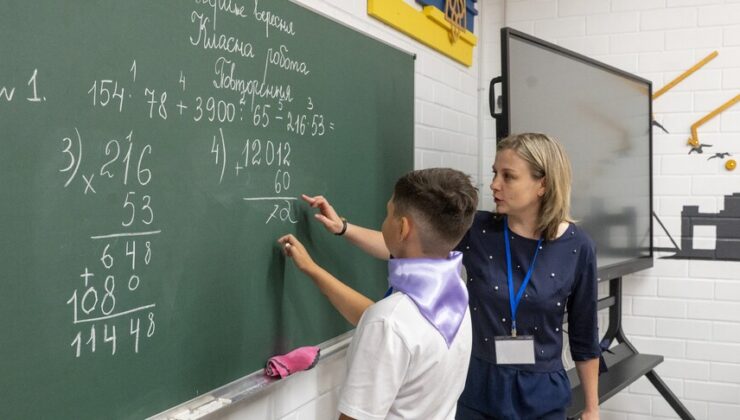 вересня
Класна робота
Повторення
1.
1 4 2 5 3
154 · 78 + 3900 : 65 - 216 · 53 =
3) × 216
53
648
+ 1080
11448
4) + 12012
60
72